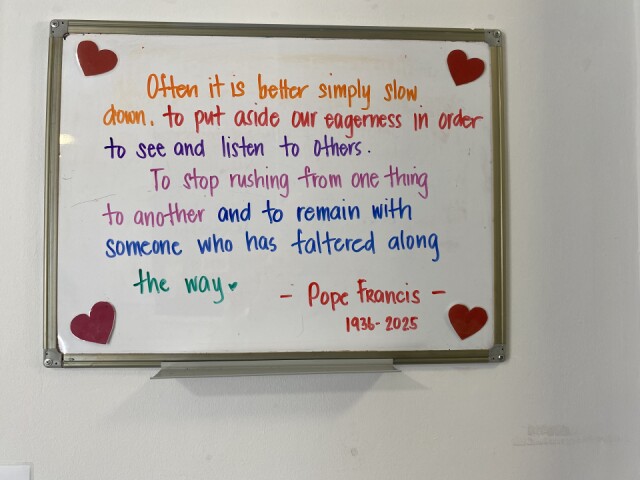 Often it is better simply slow
down, to put aside our eagerness in order
to see and listen to others.
To stop rushing from one thing
to another and to remain with
someone who has faltered along
the way
- Pope Francis -
1936-2025